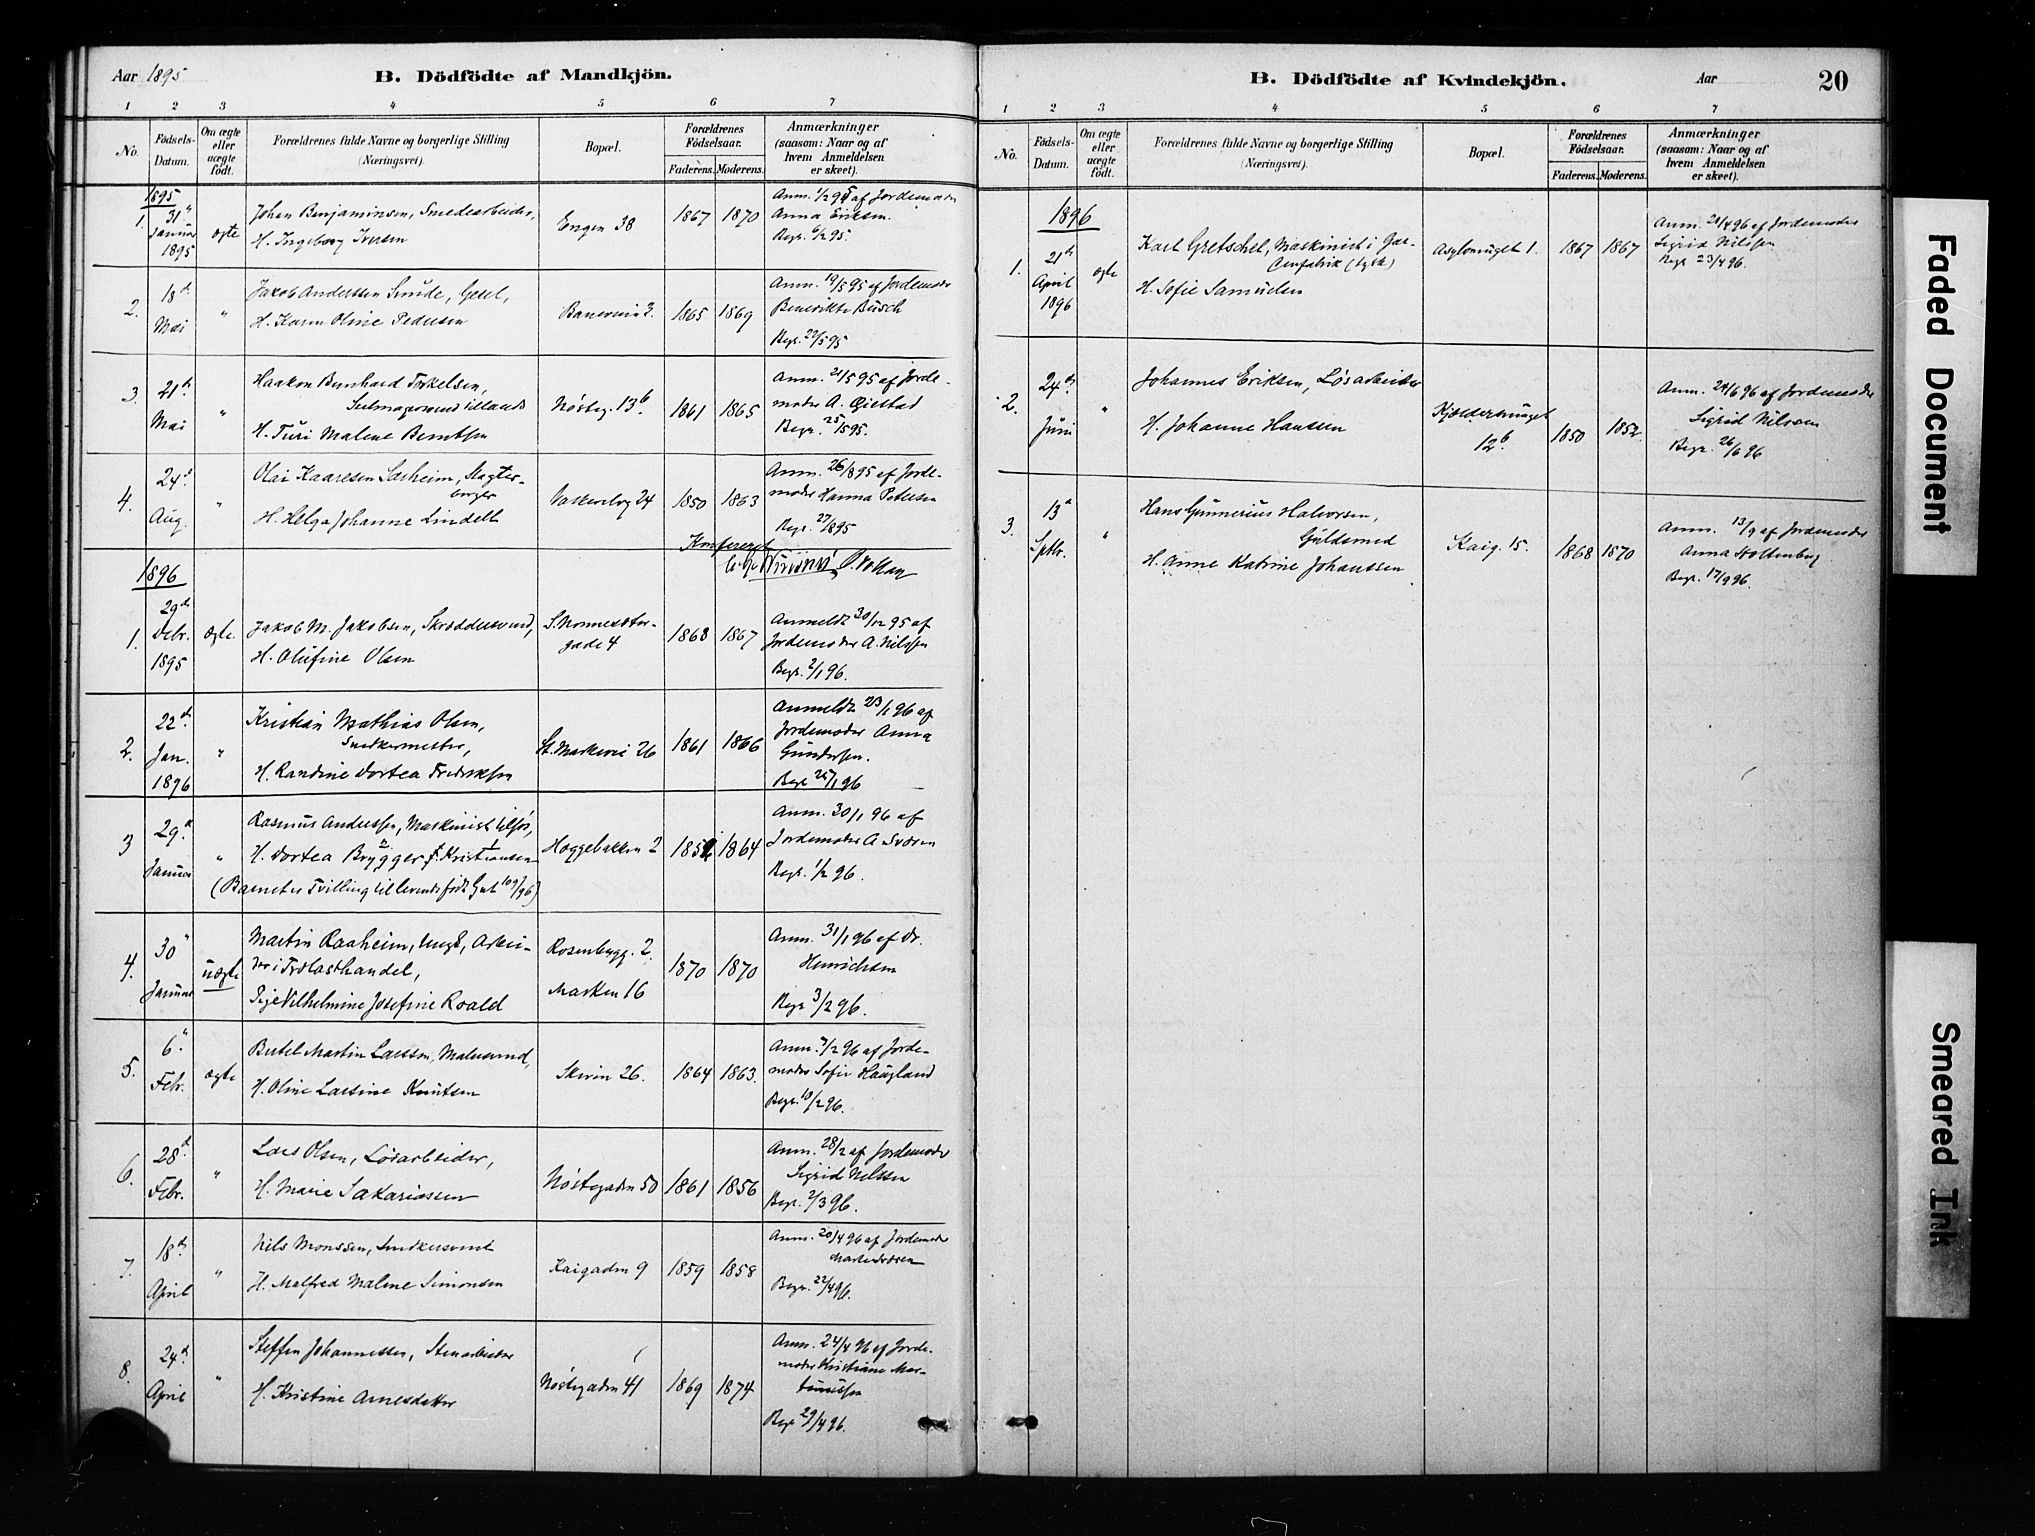 Aar 1895
B. Dödfödte af Mandkjön.
1 2 3 4 5 6 7
No.
Födsels-Datum.
Om ægte eller uægte födt.
Forældrenes fulde Navne og borgerlige Stilling (Næringsvei).
Bopæl.
Forældrenes Födselsaar.
Faderens. Moderens.
Anmærkninger (saasom: Naar og af hvem Anmeldelsen er skeet).
1895
1. 31" Januar 1895 ægte
Johan Benjaminsen, Smedearbeider,
H. Ingeborg Iversen
Engen 38 1867 1870
Anm. 1/2 95 af Jordemoder
Anna Eriksen.
Begr. 6/2 95.
2. 18de Mai "
Jakob Anderssen Smide, Gesel,
H. Karen Oline Pedersen
Baneveien 2. 1865 1869
Anm. 19/5 95 af Jordemoder
Benedikte Busch
Begr. 22/5 95
3. 21de Mai "
Haakon Bernhard Torkelsen,
Selmagersvend
H. Turi Malene Berntsen
Nøsteg. 13b. 1861 1865
Anm. 21/5 95 af Jorde-
moder A. Gjestad
Begr. 25/5 95.
4. 24de Aug. "
Olai Kaaresen Sarheim, Slagter-
borger
H. Helga Johanne Lindell
Vaskerelvg 24 1850 1863
Anm. 26/8 95 af Jorde-
moder Hanna Petersen
Begr. 27/8 95
Konfereret
1896
1. 29de Debr. 1895 ægte.
Jakob M. Jakobsen, Skræddersvend,
H. Olufine Olsen
S. Nonneseter-
gade 4
1868 1867
Anmeldt 30/12 95 af
Jordemoder A. Nilssen
Begr. 2/1 96.
2. 22de Jan. 1896 "
Kristian Mathias Olsen,
Snedkermester,
H. Randine Dortea Fredriksen
St. Markevei 26 1861 1866
Anmeldt 23/1 96 af
Jordemoder Anna
Gundersen.
Begr 25/1 96
3 29de Januar "
Rasmus Anderssen, Maskinist tilsjøs,
H. Dortea Brygger f. Kristiansen
(Barnet er Tvilling til levendefødt Gut 109/96)
Heggebakken 2 1852 1864
Anm. 30/1 96 af
Jordemoder A Sværen
Begr. 1/2 96.
4. 30" Januar uægte
Martin Raaheim, Ungk, Arbei-
der i Trælasthandel,
Pige Vilhelmine Josefine Roald
Rosenbygg. 2.
Marken 16
1870 1870
Anm. 31/1 96 af Dr.
Henrichsen
Begr 3/2 96.
5. 6" Febr. ægte
Bertel Martin Larssen, Malersvend,
H. Oline Larsine Knutsen
Skivin 26. 1864 1863.
Anm. 7/2 96 af Jorde-
moder Sofie Haugland
Begr. 10/2 96.
6. 28de Febr. "
Lars Olsen, Løsarbeider,
H. Marie Sakariassen
Nøstegaden 50 1861 1856
Anm. 28/2 af Jordemoder
Sigrid Nilssen
Begr. 2/3 96.
7. 18de April "
Nils Monssen, Snedkersvend
H. Malfred Malene Simonsen
Kaigaden 9 1859 1858
Anm. 20/4 96 af Jordemoder
Marte Sværen
Begr. 22/4 96.
8. 24de April "
Steffen Johannessen, Stenarbeider
H. Kristine Arnesdatter
Nøstegaden 41 1869 1874
Anm. 24/4 96 af Jorde-
moder Kristiane Mar-
tinussen
Begr 29/4 96.
B. Dödfödte af Kvindekjön.
Aar
20
1 2 3 4 5 6 7
No.
Födsels-Datum.
Om ægte eller uægte födt.
Forældrenes fulde Navne og borgerlige Stilling (Næringsvei).
Bopæl.
Forældrenes Födselsaar.
Faderens. Moderens.
Anmærkninger (saasom: Naar og af hvem Anmeldelsen er skeet).
1896
1. 21de April 1896 ægte
Karl Gretschel, Maskinist i Gar-
denfabrik (tysk)
H. Sofie Samuelsen
Asylsmuget 1. 1867 1867
Anm. 21/4 96 af Jordemoder
Sigrid Nilssen
Begr 23/4 96.
2. 24de Juni "
Johannes Eriksen, Løsarbeider
H. Johanne Hanssen
Kjeldersmuget
12b.
1850 1852
Anm. 24/6 96 af Jordemoder
Sigrid Nilssen
Begr. 26/6 96
3. 13de Sptbr. "
Hans Gunnerius Halvorsen,
Guldsmed
H. Anne Katrine Johanssen
Kaig. 15. 1868 1870
Anm. 13/9 af Jordemoder
Anna Stoltenberg
Begr. 17/9 96.
Faded Document
Smeared Ink